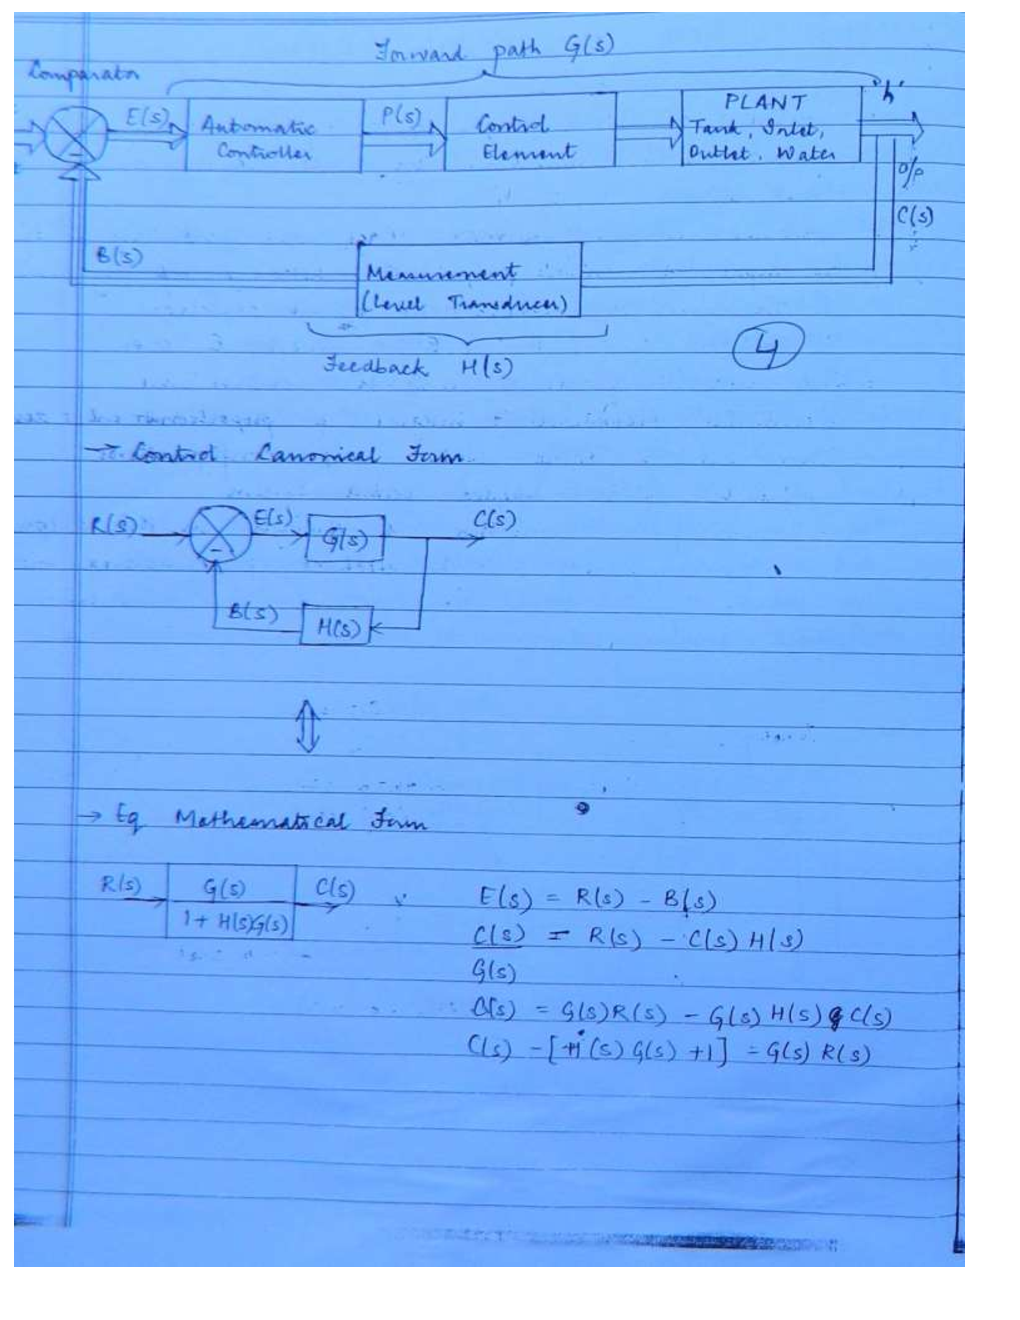 Forward path G(s)
Comparator
E(s)
Automatic
Controller
P(s)
Control
Element
PLANT
Tank, Inlet,
Outlet, Water
"h"
O/P
C(s)
B(s)
Measurement
(Level Transducer)
Feedback H(s)
4
→ Control Canonical Form
R(s)
E(s)
G(s)
C(s)
B(s)
H(s)
→ Eq Mathematical Form
R(s)
G(s)
1 + H(s)G(s)
C(s)
E(s) = R(s) - B(s)
C(s) = R(s) - C(s) H(s)
G(s)
C(s) = G(s)R(s) - G(s) H(s) C(s)
C(s) - [H(s) G(s) +1] = G(s) R(s)